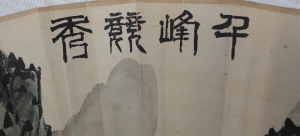 千峰競秀